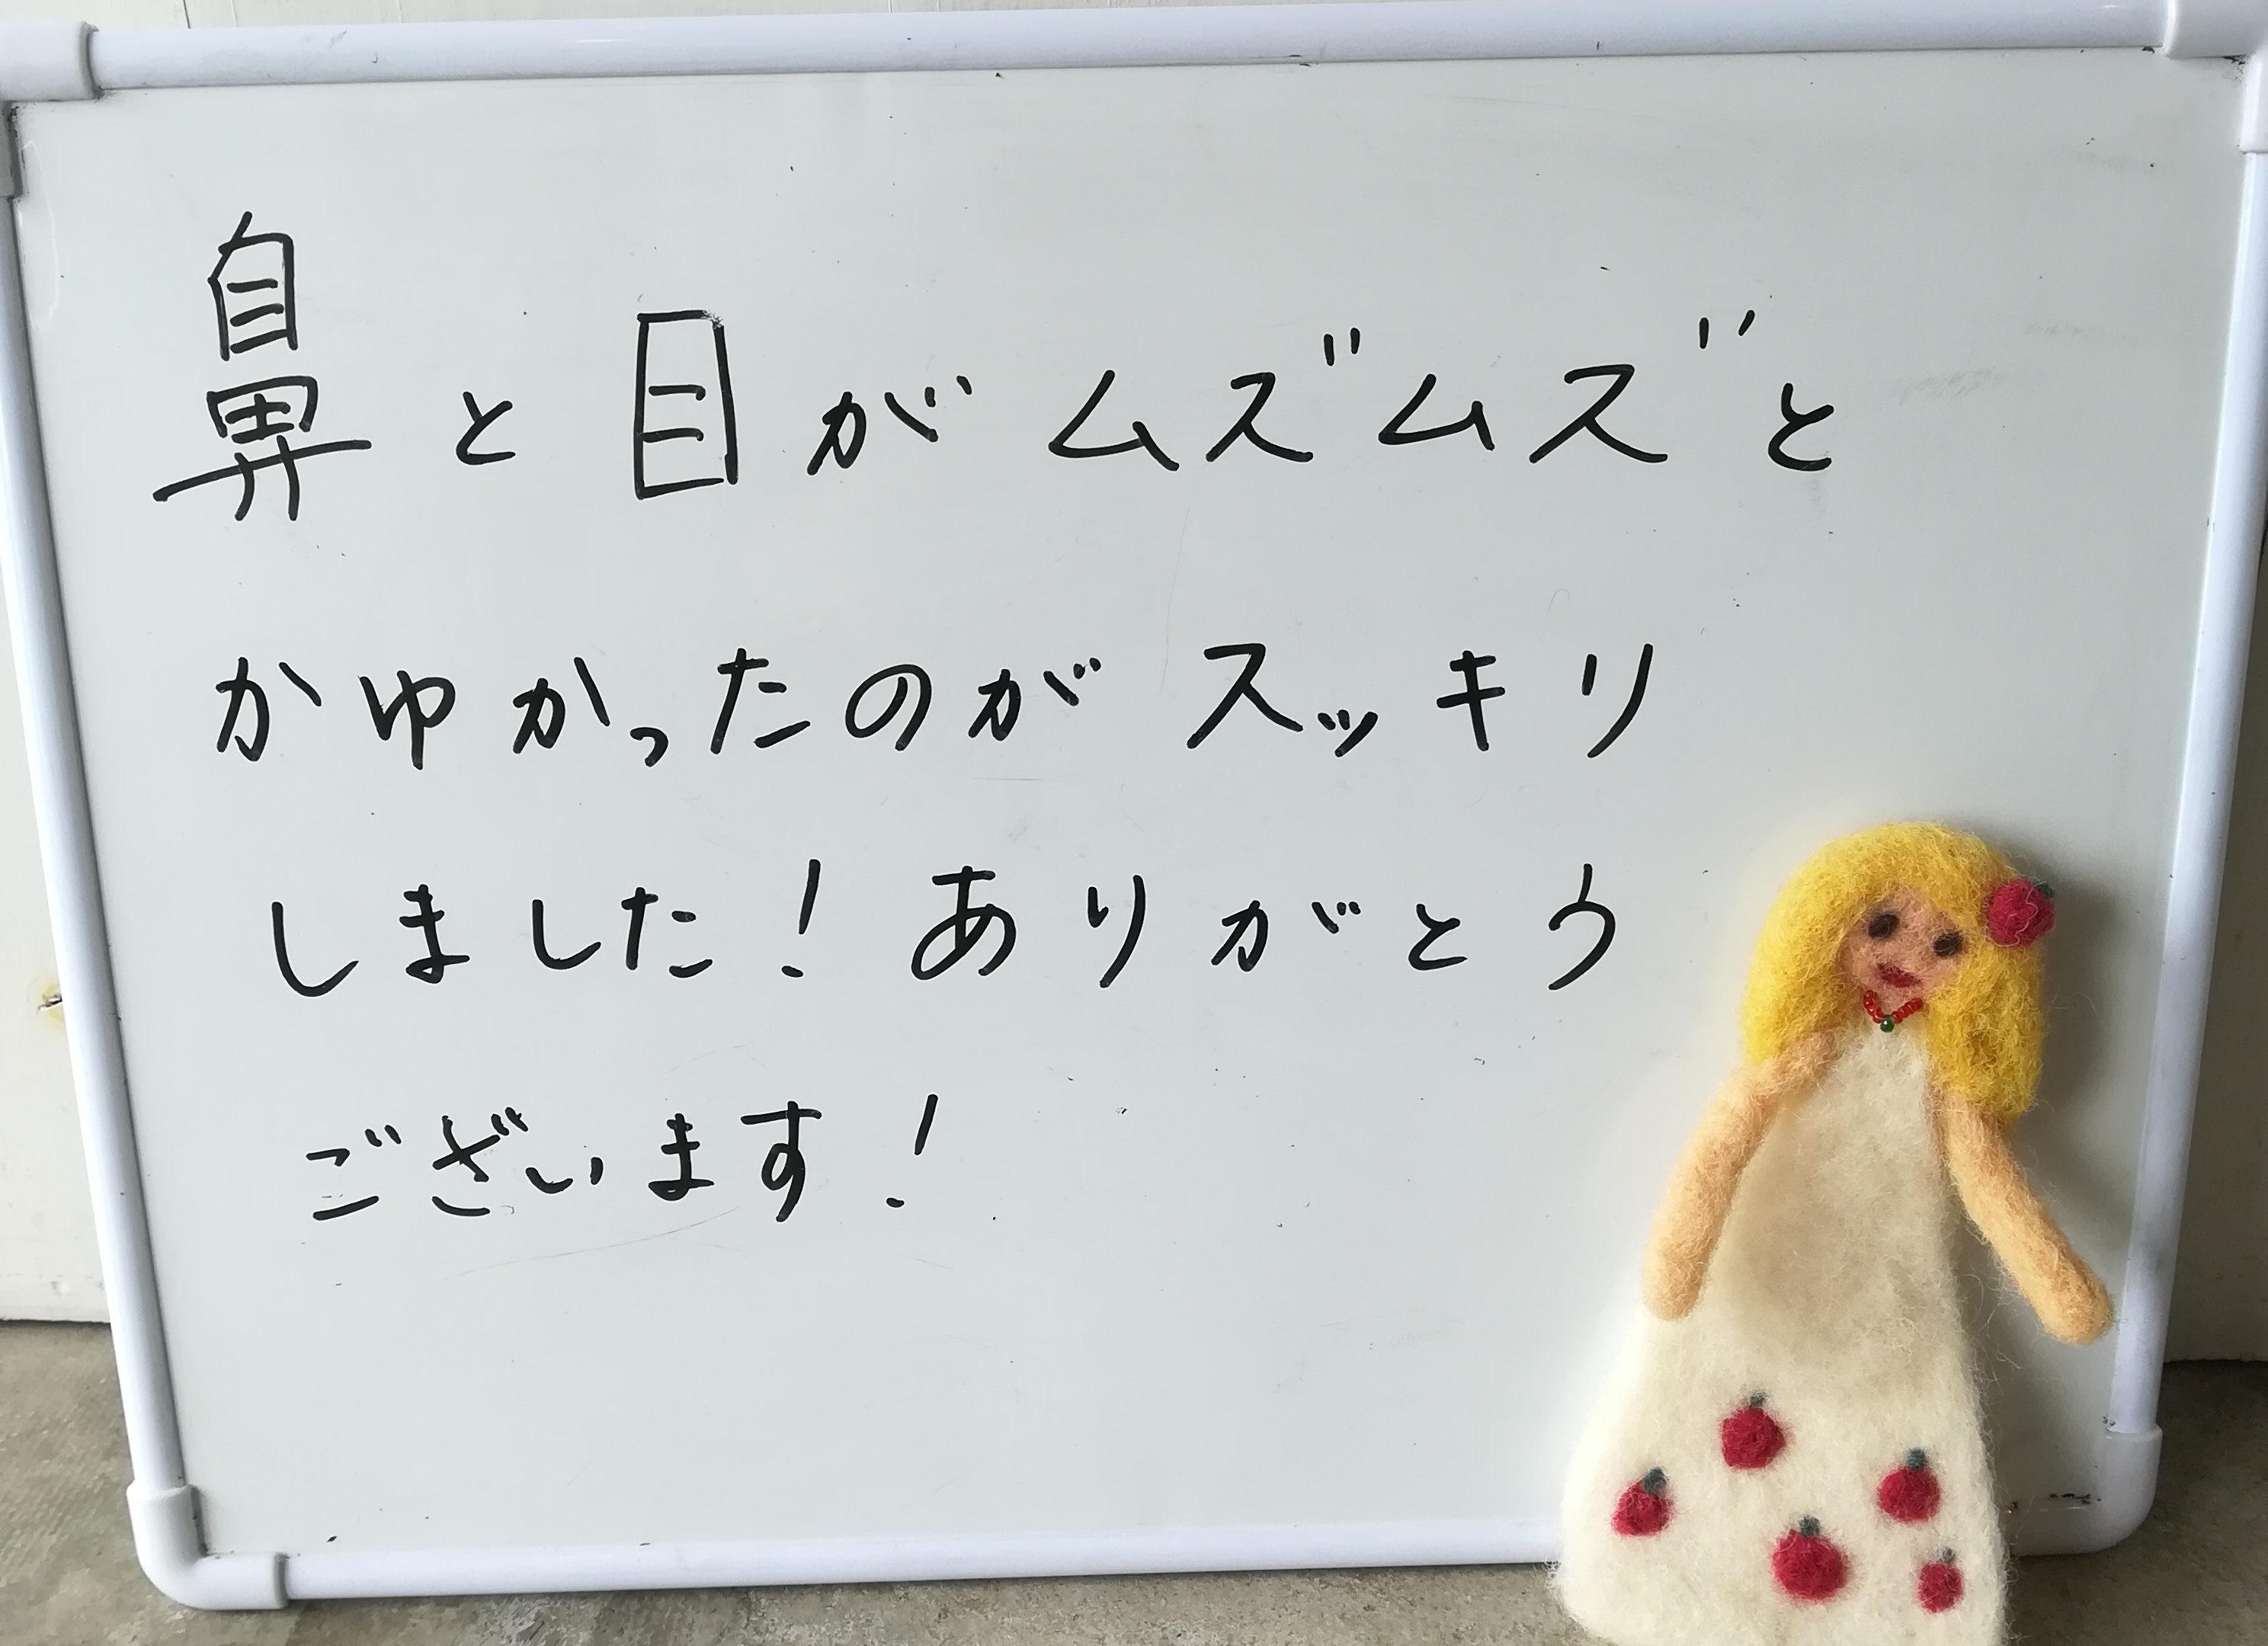 鼻と目がムズムズと
かゆかったのがスッキリ
しました！ありがとう
ございます！